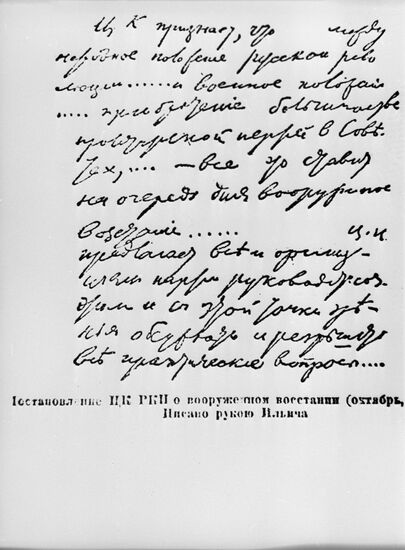 Ц К признает, что межд
народное положение русской рево
люции......и военное положен
.....приобретение большинства
пролетарской партией в Сове
тах,... —все это ставит
на очередь дня вооруженное
восстание...... Ц.К.
предлагает всем организа-
циям партии руководствов
этим и с этой точки зрѣ-
ния обсуждать и разрѣшать
всѣ практические вопросы....
Постановление ЦК РКП о вооруженном восстании (октябрь,
Писано рукою Ильича